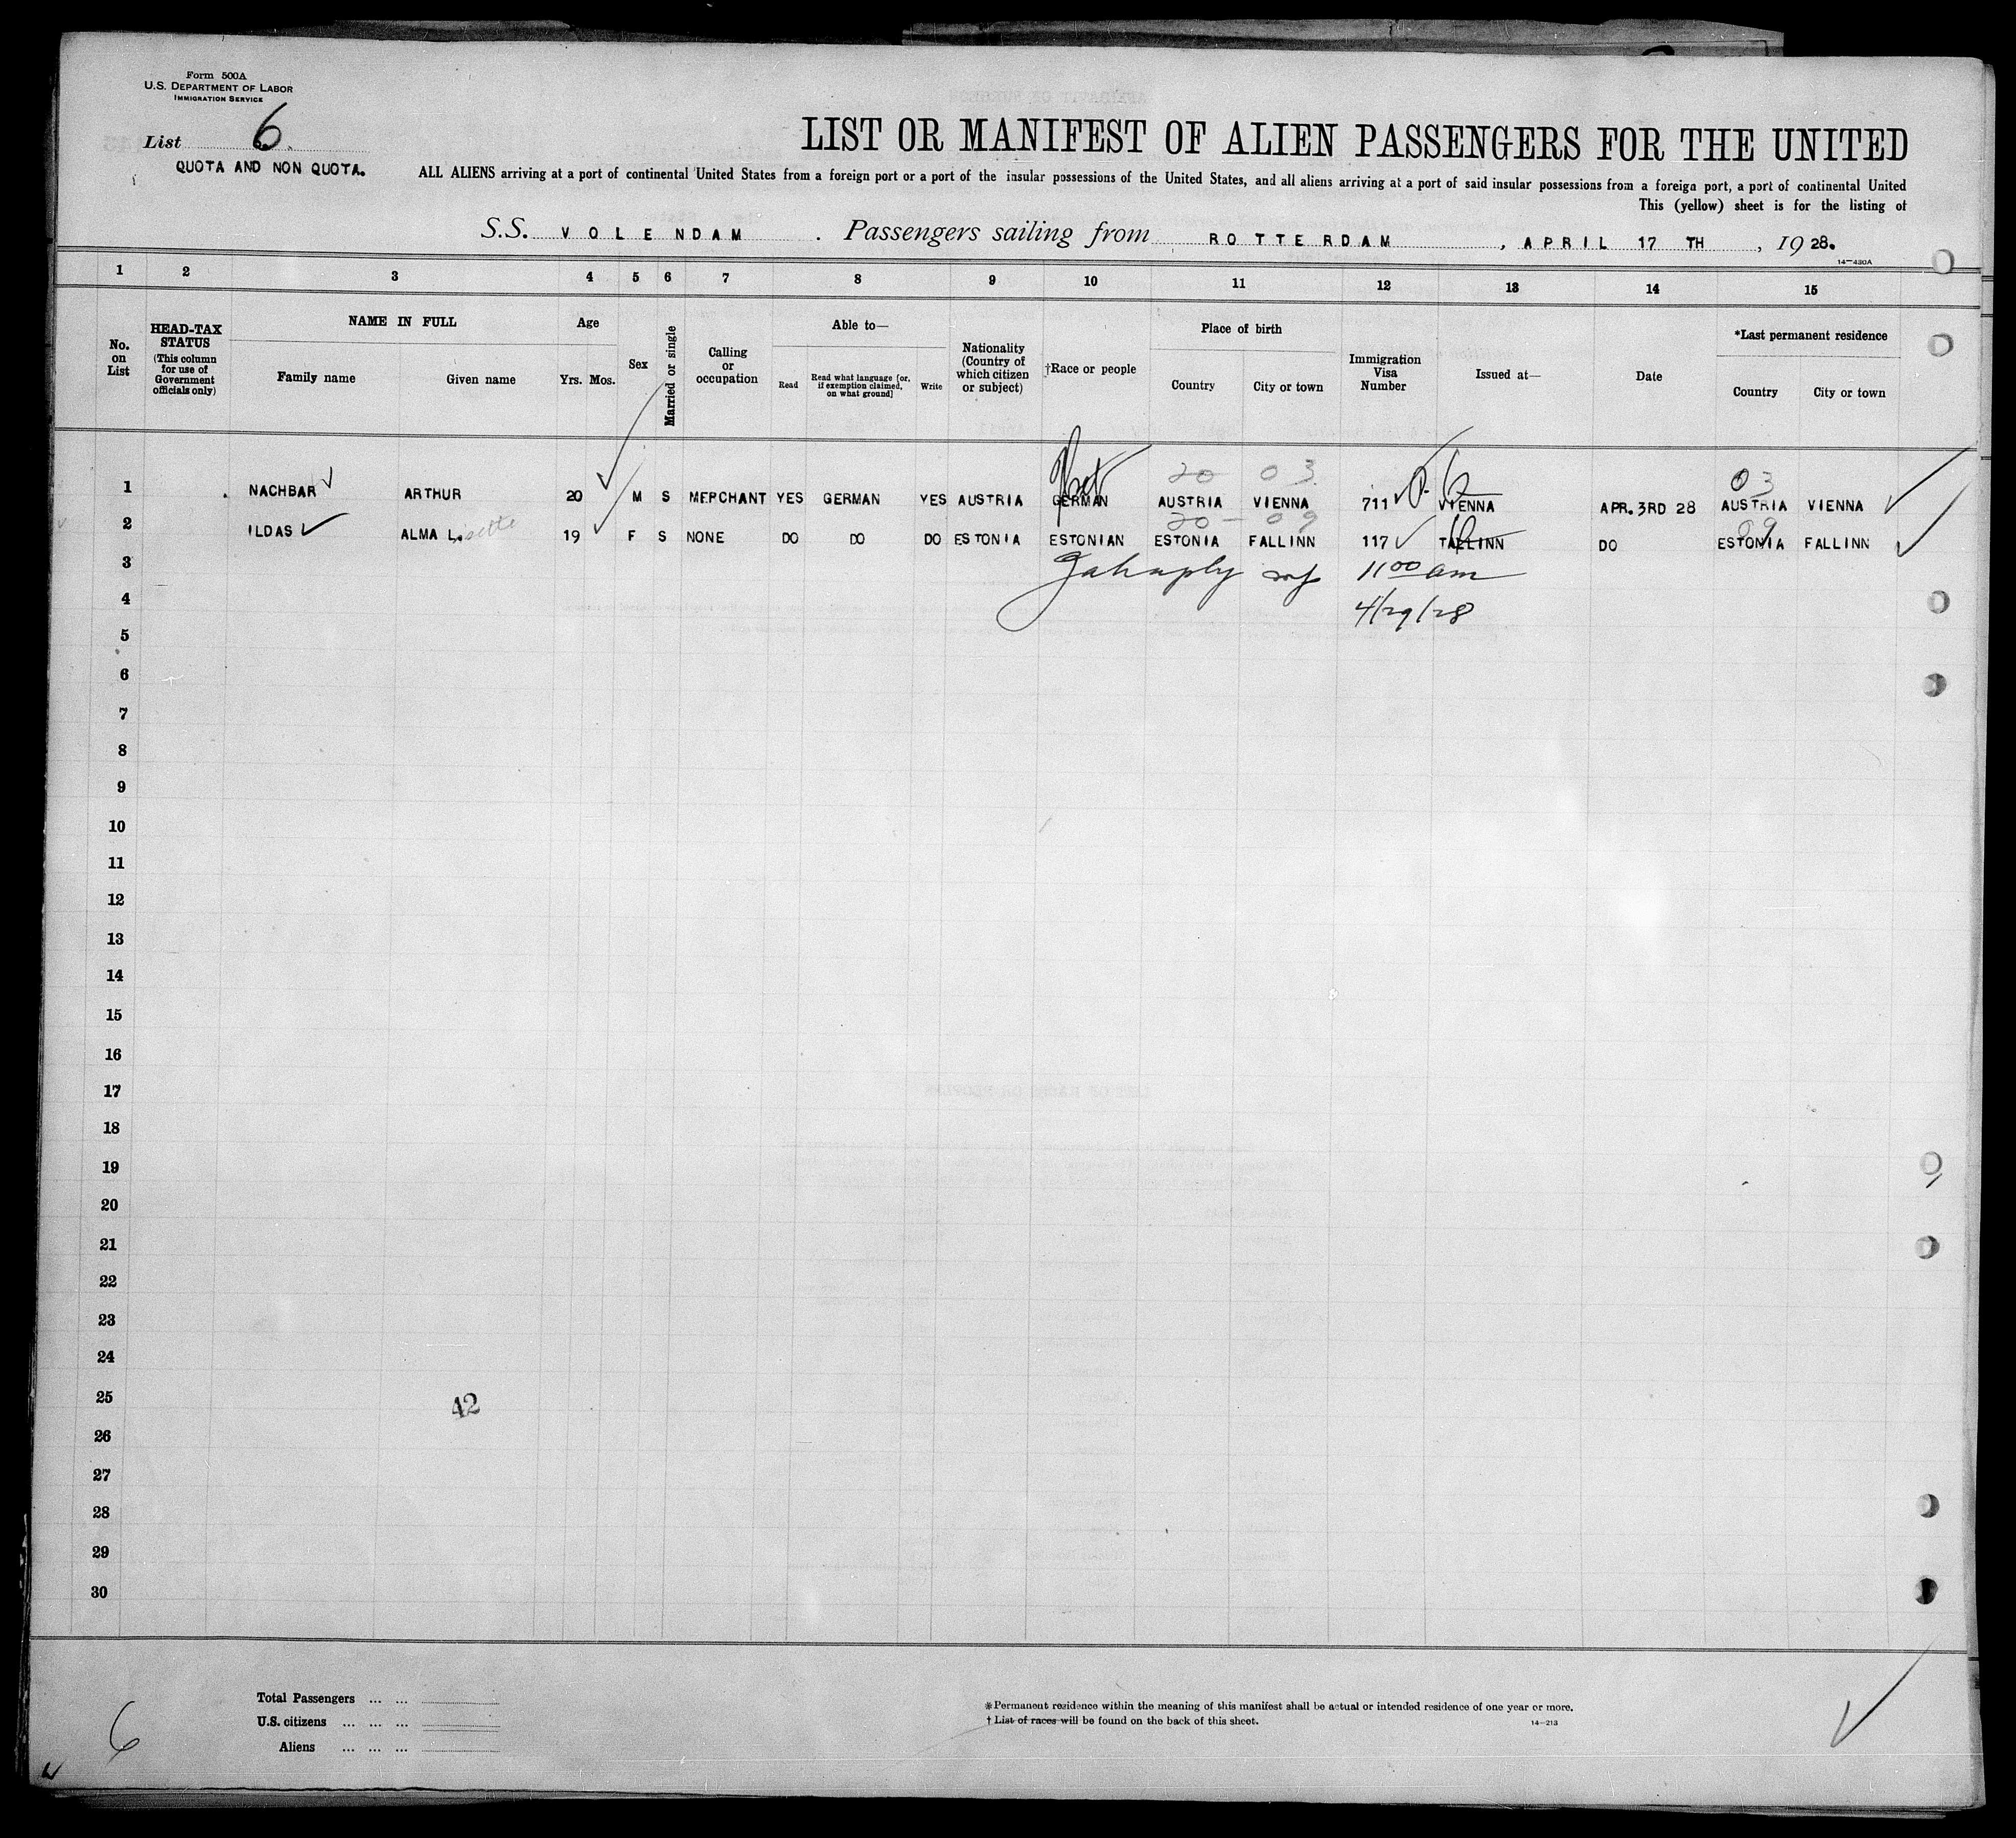 Form 500A
U.S. DEPARTMENT OF LABOR
IMMIGRATION SERVICE
List 6.
QUOTA AND NON QUOTA.
LIST OR MANIFEST OF ALIEN PASSENGERS FOR THE UNITED
ALL ALIENS arriving at a port of continental United States from a foreign port or a port of the insular possessions of the United States, and all aliens arriving at a port of said insular possessions from a foreign port, a port of continental United
This (yellow) sheet is for the listing of
S.S. VOLENDAM. Passengers sailing from ROTTERDAM, APRIL 17 TH, 1928.
14—430A
1 2 3 4 5 6 7 8 9 10 11 12 13 14 15
No. on List
HEAD-TAX STATUS (This column for use of Government officials only)
NAME IN FULL
Family name Given name
Age
Yrs. Mos.
Sex
Married or single
Calling or occupation
Able to—
Read
Read what language [or, if exemption claimed, on what ground]
Write
Nationality (Country of which citizen or subject)
†Race or people
Place of birth
Country City or town
Immigration Visa Number
Issued at—
Date
*Last permanent residence
Country City or town
20 03 03
1 NACHBAR ARTHUR 20 M S MERCHANT YES GERMAN YES AUSTRIA GERMAN AUSTRIA VIENNA 711 VIENNA APR. 3RD 28 AUSTRIA VIENNA
20 - 09 09
2 ILDAS ALMA L. isette 19 F S NONE DO DO DO ESTONIA ESTONIAN ESTONIA FALLINN 117 TALLINN DO ESTONIA FALLINN
3 11 00 am
4 4/29/28
5
6
7
8
9
10
11
12
13
14
15
16
17
18
19
20
21
22
23
24
25
42
26
27
28
29
30
Total Passengers ... ...
U.S. citizens ... ... ...
Aliens ... ... ...
6
*Permanent residence within the meaning of this manifest shall be actual or intended residence of one year or more.
† List of races will be found on the back of this sheet.
14—213